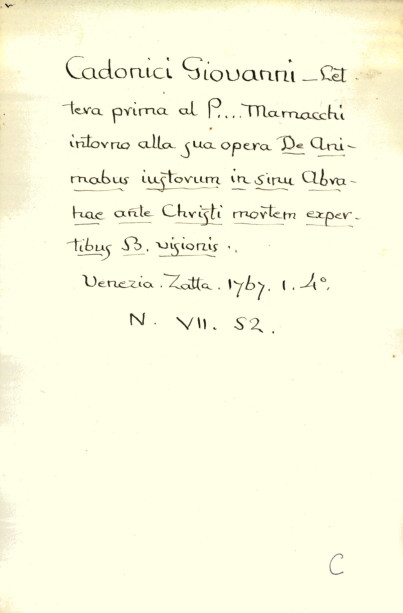 Cadonici Giovanni - Let-
tera prima al P.... Mamacchi
intorno alla sua opera De Ani-
mabus iustorum in sinu Abra-
hae ante Christi mortem exper-
tibus B. visionis..
Venezia. Zatta. 1767. 1. 4°.
N. VII. 52.
C